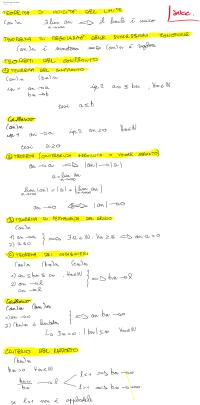 TEOREMA DI UNICITÀ DEL LIMITE
∃ lim an ⟹ il limite è unico
TEOREMA DI REGOLARITÀ DELLE SUCCESSIONI MONOTONE
(an)n è monotona ⟹ (an)n è regolare
TEOREMI DEL CONFRONTO
① TEOREMA DEL CONFRONTO
(an)n (bn)n
ip. an → a
bn → b
ip. 2 an ≤ bn, ∀n∈ℕ
tesi a ≤ b
Corollario
ip. 1 an → a ip. 2 an ≥ 0 ∀n∈ℕ
tesi a ≥ 0
an → a ⟹ |an| → |a|
a = lim an
lim |an| = |a| = |lim an|
an → 0 ⟺ |an| → 0
③ TEOREMA DI PERMANENZA DEL SEGNO
(an)n
1) an → a
2) a > 0
④ TEOREMA DEI CARABINIERI
(an)n (bn)n (cn)n
1) an ≤ bn ≤ cn, ∀n∈ℕ
2) an → l
cn → l
⟹ bn → l
Corollario
(an)n (bn)n
1) an → 0
2) (bn)n è limitata
⟹ an bn → 0
∃ M > 0 : |bn| ≤ M ∀n∈ℕ
CRITERIO DEL RAPPORTO
(bn)n
bn > 0 ∀n∈ℕ
bn+1
bn → l
l < 1 ⟹ bn → 0
l > 1 ⟹ bn → +∞
se l = 1 non è applicabile